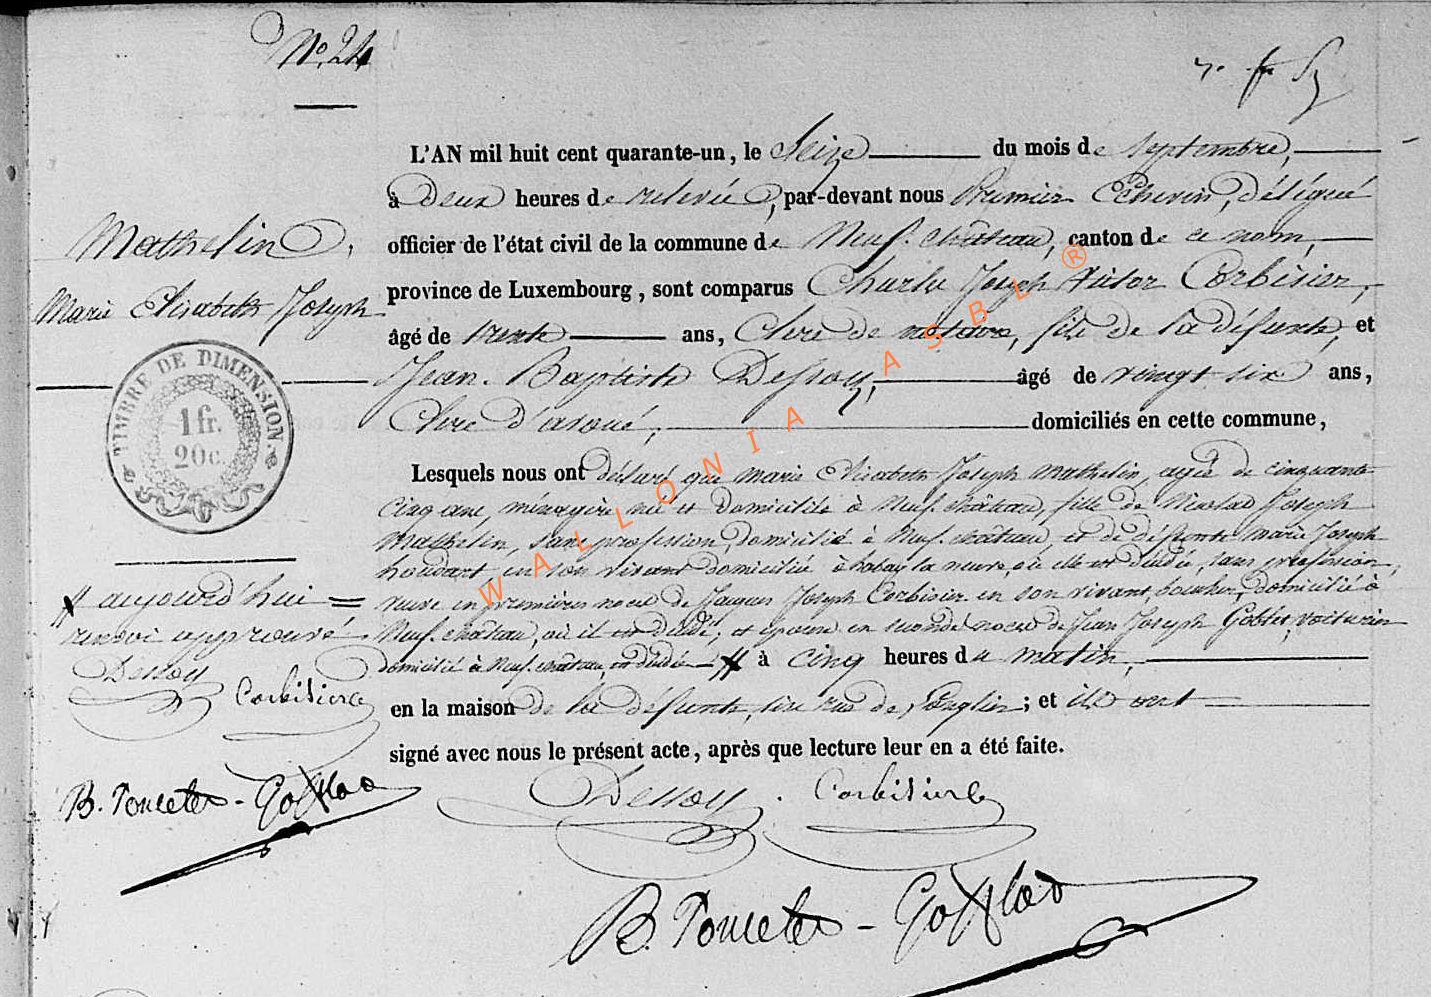 N.º 24
L'AN mil huit cent quarante-un, le Seize du mois de Septembre,
à Deux heures de relevée, par-devant nous Premier Echevin, délégué
officier de l'état civil de la commune de Neuf-château, canton de ce nom,
province de Luxembourg, sont comparus Charles Joseph Victor Corbisier,
âgé de trente ans, Clerc de notaire, fils de la défunte, et
Jean-Baptiste Dessoy, âgé de vingt six ans,
Clerc d'avoué, domiciliés en cette commune,
Lesquels nous ont déclaré que marie Elisabeth Joseph mathelin, agée de cinquante
cinq ans, ménagère née et domiciliée à Neuf-château, fille de Nicolas Joseph
Mathelin, sans profession, domicilié à Neuf-château, et de défunte Marie Joseph
houdart en son vivant domiciliée à habay la neuve, où elle est décédée, sans profession,
veuve en premières noces de Jacques Joseph Corbisier en son vivant boucher, domicilié à
Neuf-château, où il est décédé, et épouse en seconde noces de Jean Joseph Goblet, voiturier
domicilié à Neuf-château, est décédée à cinq heures du matin,
en la maison de la défunte, sise rue de Longlier; et ils ont
signé avec nous le présent acte, après que lecture leur en a été faite.
Dessoy. Corbisier
B. Poncelet-
Mathelin,
Marie Elisabeth Joseph
TIMBRE DE DIMENSION.
1 fr.
20c.
aujourd'hui
renvoi approuvé
Dessoy
Corbisier
B. Poncelet-
WALLONIA ASBL ®